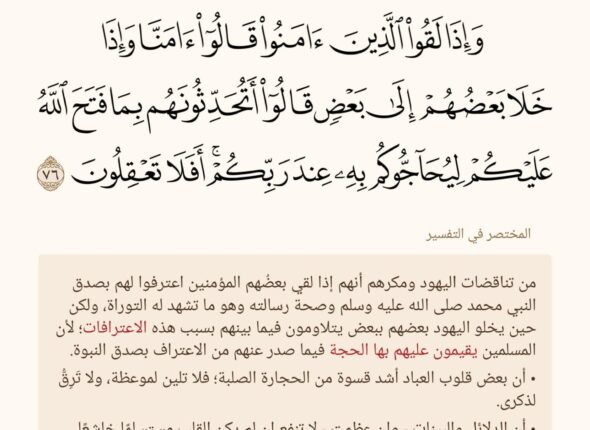 وَإِذَا لَقُوا۟ ٱلَّذِينَ ءَامَنُوا۟ قَالُوٓا۟ ءَامَنَّا وَإِذَا
خَلَا بَعْضُهُمْ إِلَىٰ بَعْضٍ قَالُوٓا۟ أَتُحَدِّثُونَهُم بِمَا فَتَحَ ٱللَّهُ
عَلَيْكُمْ لِيُحَآجُّوكُم بِهِۦ عِندَ رَبِّكُمْ ۚ أَفَلَا تَعْقِلُونَ ٧٦
المختصر في التفسير
من تناقضات اليهود ومكرهم أنهم إذا لقي بعضُهم المؤمنين اعترفوا لهم بصدق
النبي محمد صلى الله عليه وسلم وصحة رسالته وهو ما تشهد له التوراة، ولكن
حين يخلو اليهود بعضهم ببعض يتلاومون فيما بينهم بسبب هذه الاعترافات؛ لأن
المسلمين يقيمون عليهم بها الحجة فيما صدر عنهم من الاعتراف بصدق النبوة.
• أن بعض قلوب العباد أشد قسوة من الحجارة الصلبة؛ فلا تلين لموعظة، ولا تَرِقُّ
لذكرى.